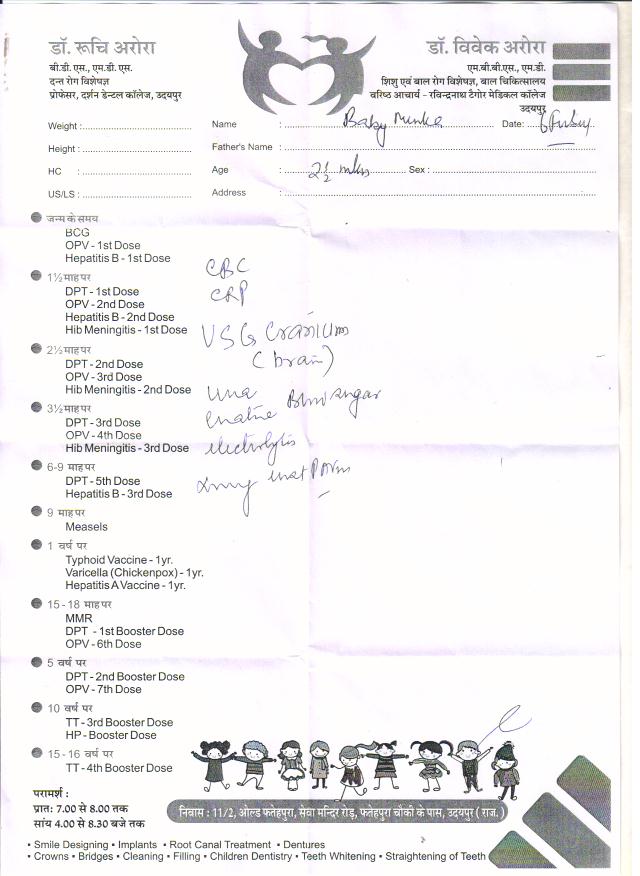 डॉ. रूचि अरोरा
बी.डी. एस., एम.डी. एस.
दन्त रोग विशेषज्ञ
प्रोफेसर, दर्शन डेन्टल कॉलेज, उदयपुर
डॉ. विवेक अरोरा
एम.बी.बी.एस., एम.डी.
शिशु एवं बाल रोग विशेषज्ञ, बाल चिकित्सालय
वरिष्ठ आचार्य - रविन्द्रनाथ टैगोर मेडिकल कॉलेज
उदयपुर
Weight : Name : Baby Date:
Height : Father's Name :
HC : Age : 2½ Sex :
US/LS : Address :
जन्म के समय
BCG
OPV - 1st Dose
Hepatitis B - 1st Dose
CBC
1½ माह पर
DPT - 1st Dose
CRP
OPV - 2nd Dose
Hepatitis B - 2nd Dose
Hib Meningitis - 1st Dose
USG Cranium
(brain)
2½ माह पर
DPT - 2nd Dose
OPV - 3rd Dose
Hib Meningitis - 2nd Dose
3½ माह पर
DPT - 3rd Dose
OPV - 4th Dose
Hib Meningitis - 3rd Dose
electrolytes
6-9 माह पर
DPT - 5th Dose
Hepatitis B - 3rd Dose
9 माह पर
Measels
1 वर्ष पर
Typhoid Vaccine - 1yr.
Varicella (Chickenpox) - 1yr.
Hepatitis A Vaccine - 1yr.
15 - 18 माह पर
MMR
DPT - 1st Booster Dose
OPV - 6th Dose
5 वर्ष पर
DPT - 2nd Booster Dose
OPV - 7th Dose
10 वर्ष पर
TT - 3rd Booster Dose
HP - Booster Dose
15 - 16 वर्ष पर
TT - 4th Booster Dose
परामर्श :
प्रातः 7.00 से 8.00 तक
सांय 4.00 से 8.30 बजे तक
निवास : 11/2, ओल्ड फतेहपुरा, सेवा मन्दिर रोड़, फतेहपुरा चौकी के पास, उदयपुर ( राज. )
• Smile Designing • Implants • Root Canal Treatment • Dentures
• Crowns • Bridges • Cleaning • Filling • Children Dentistry • Teeth Whitening • Straightening of Teeth